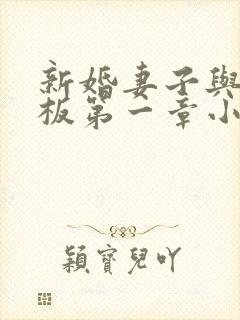 新婚妻子與
板第一章小
穎寶兒吖